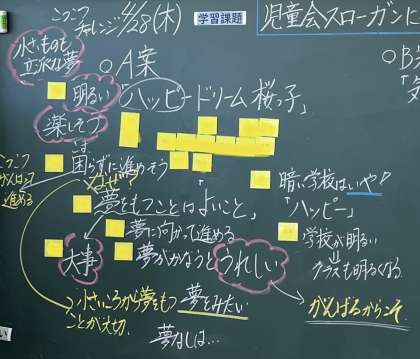 こつこつ
チャレンジ 6/28(木)
学習課題
児童会スローガンに
小さいものも
立派な夢
○A案
○B
明るい
ハッピードリーム桜っ子」
楽しそう
は
困らずに進めそう
こつこつ
がんばって
進める
なぜ?
暗い学校はいや!
「ハッピー」
夢をもつことはよいこと」
夢に向かって進める
学校が明るい
クラスも明るくなる
大事
夢がかなうと
うれしい
小さいころから夢をもつ
ことが大切.
夢をみたい
がんばるからこそ.
夢なしは…
い